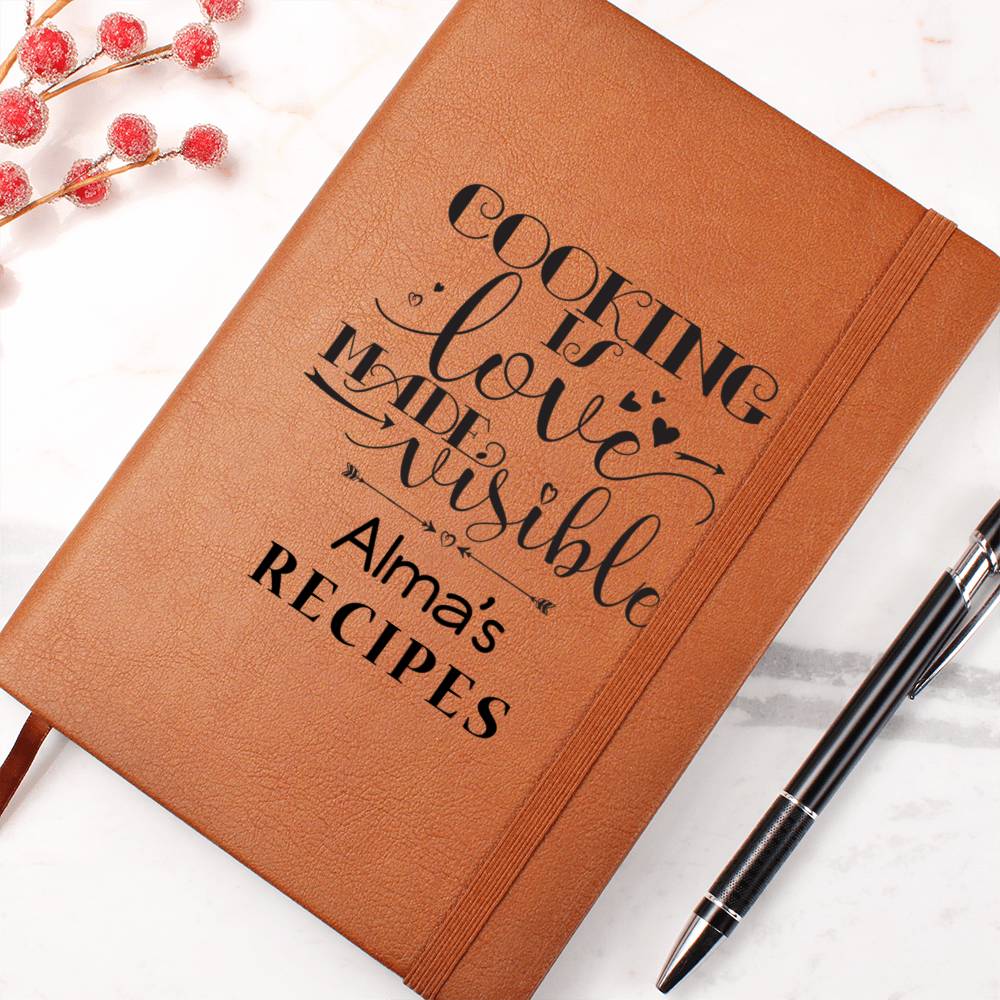 COOKING
IS
love
MADE
visible
Alma's
RECIPES